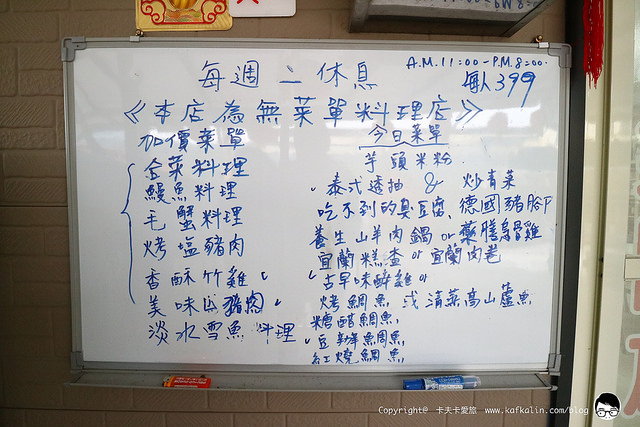 A.M.11:00-P.M.8:00.
每週二休息
每人399
《本店為無菜單料理店》
加價菜單
合菜料理
鰻魚料理
毛蟹料理
烤塩豬肉
香酥竹雞
美味山豬肉
淡水雪魚料理
今日菜單
芋頭米粉.
泰式透抽 & 炒青菜
吃不到的臭豆腐、德國豬腳
養生山羊肉鍋or藥膳烏骨雞
宜蘭糕渣or宜蘭肉卷
古早味醉雞or
烤鯛魚 或清蒸高山鱸魚
糖醋鯛魚,
豆瓣鯛魚,
紅燒鯛魚,
Copyright@ 卡夫卡愛旅 www.kafkalin.com/blog